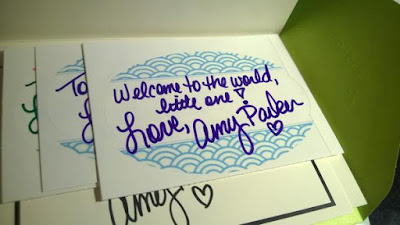 Welcome to the world,
little one!
Love, Amy Parker
To
L
Amy